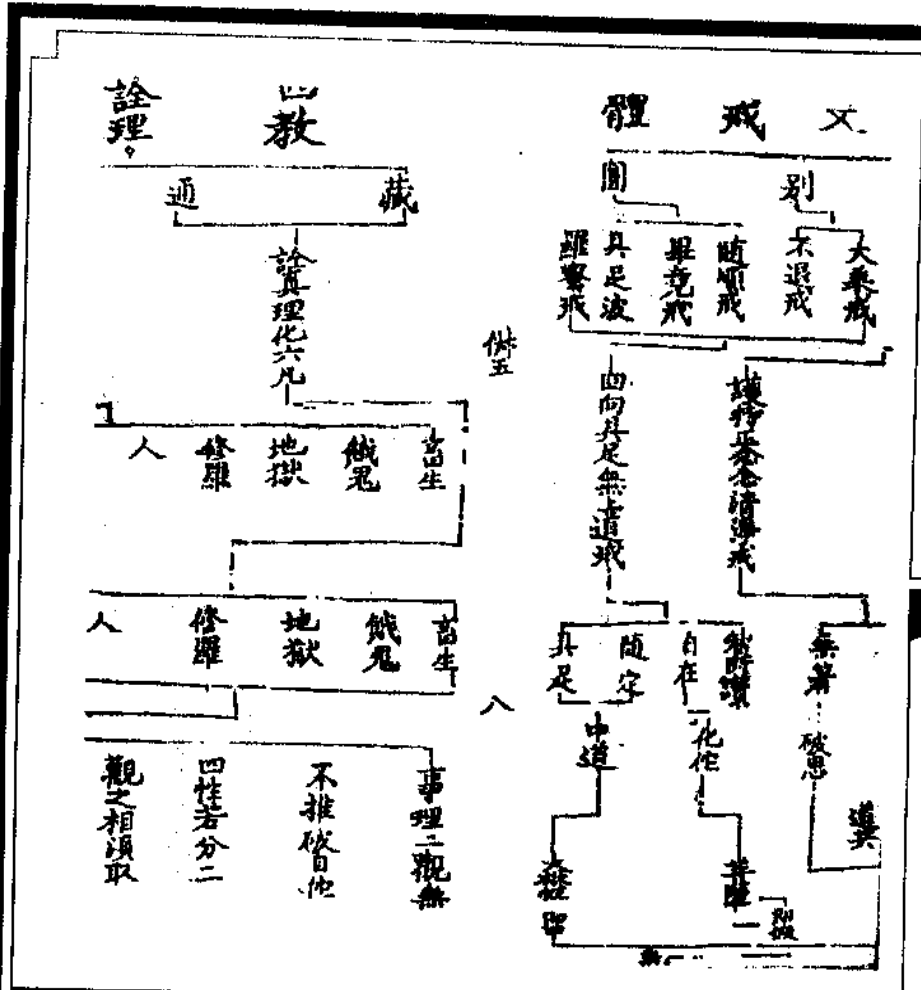 文戒體
別
圓
大乘戒
不退戒
隨順戒
畢竟戒
具足波
羅蜜戒
護持正念念清淨戒
回向具足無上道戒
無著
破思
智所讚
自在
隨定
具足
化他
中道
菩薩
八
四教
詮理
藏
通
詮真理化六凡
畜生
餓鬼
地獄
修羅
人
畜生
餓鬼
地獄
修羅
人
事理二觀無
不推破自他
四性若分二
觀之相須取